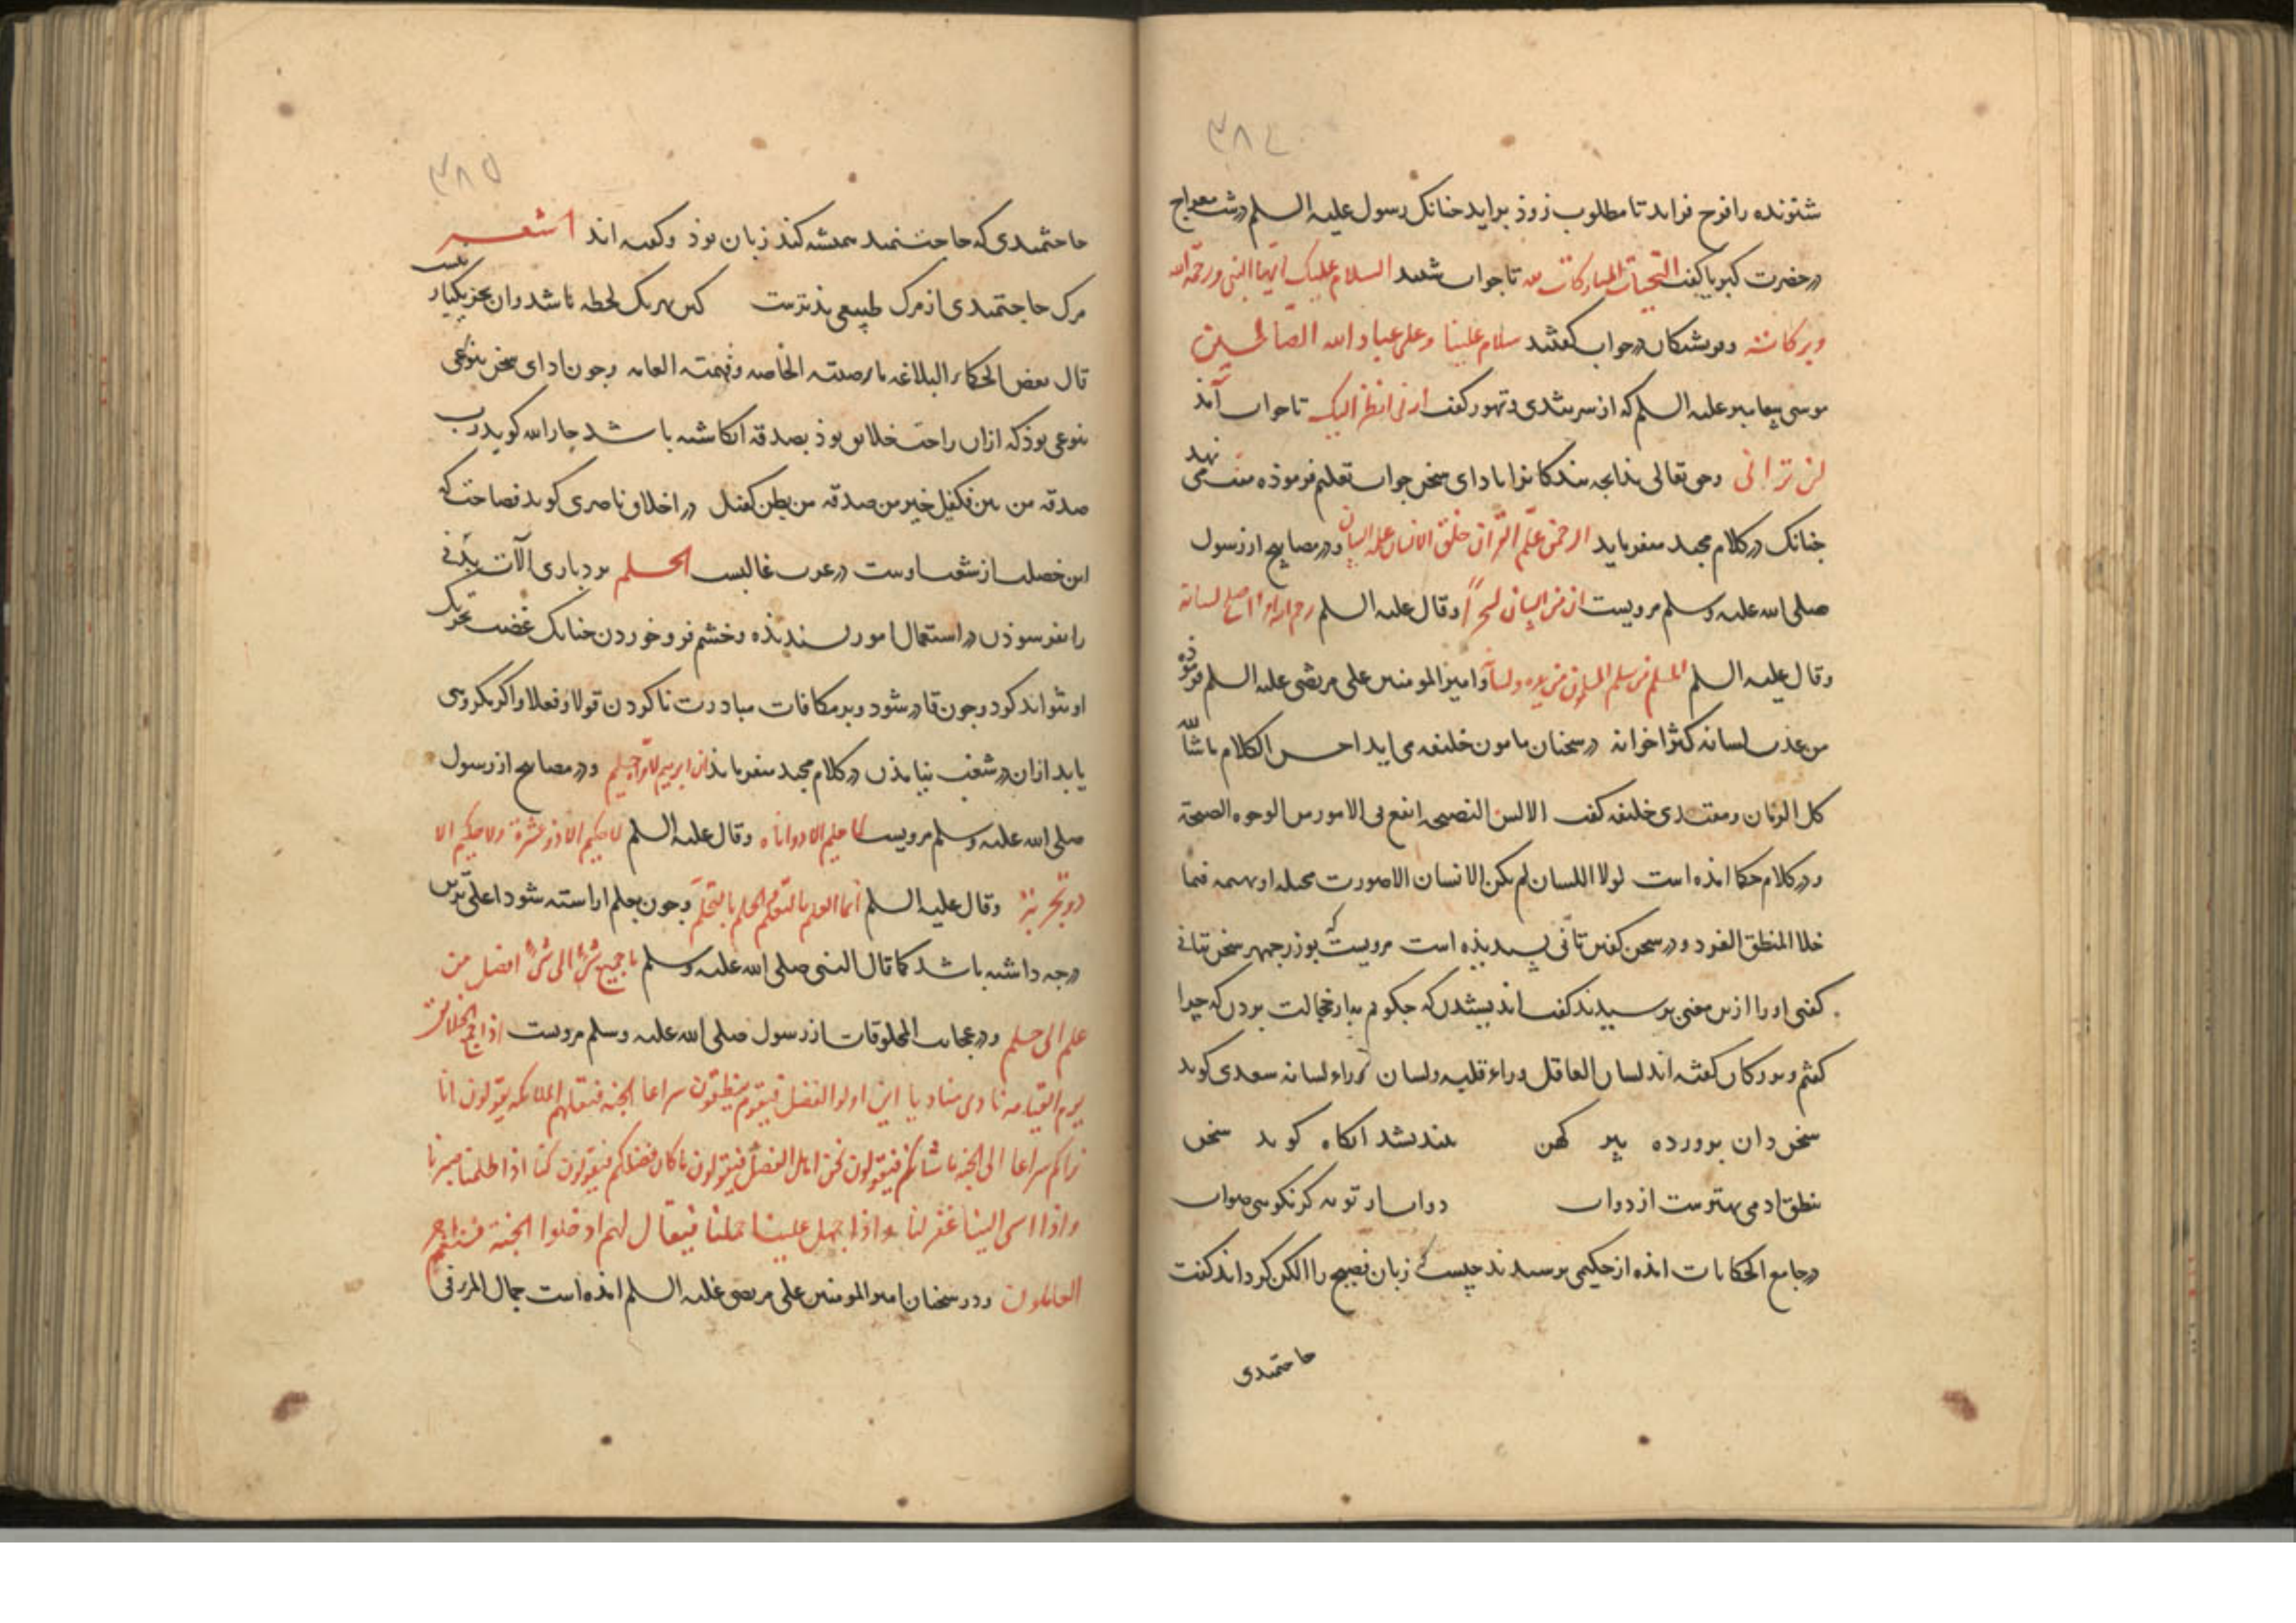 ۳۸۴
شنونده را فرح فزاید تا مطلوب زوذ براید جنانک رسول علیه السلم در شب معراج
در حضرت کبریا کفت التحیات المبارکات لله تا جواب شنید السلام علیک ایها النبی ورحمة الله
وبرکاته در جواب کفتند سلام علینا وعلی عباد الله الصالحین
موسی پیغامبر علیه السلم که از سر تندی و تهور کفت ارنی انظر الیک تا جواب آمذ
لن ترانی وحق تعالی بندکانرا بادای سخن جواب تعلیم فرموذه منت می نهد
جنانک در کلام مجید میفرماید الرحمن علم القران خلق الانسان علمه البیان ودر مصابیح از رسول
صلی الله علیه وسلم مرویست ان من البیان لسحرا وقال علیه السلم رحم الله امرا اصلح لسانه
وقال علیه السلم المسلم من سلم المسلمون من یده ولسانه وامیر المومنین علی مرتضی علیه السلم فرموذه
من عذب لسانه کثر اخوانه در سخنان مامون خلیفه می اید احسن الکلام ما شاکله
کل الزمان ومقتدی خلیفه کفت الالسن الفصیحه انفع فی الامور من الوجوه الصبیحة
ودر کلام حکما امذه است لولا اللسان لم یکن الانسان الا صورت او بهیمه
ودر سخن کفتن تانی پسندیذه است مرویست که بوزرجمهر سخن بتانی
کفتی او را ازین معنی پرسیدند کفت اندیشیدن که جکویم به از خجالت بردن که چرا
کفتم وبزرکان کفته اند لسان العاقل وراء قلبه ولسان وراء لسانه سعدی کوید
سخن دان پرورده پیر کهن بیندیشد انکاه کوید سخن
بنطق ادمی بهترست از دواب دواب از تو به کر نکویی صواب
در جامع الحکایات امذه از حکیمی پرسیدند چیست که زبان فصیح را الکن کرداند کفت
حاجتمندی
۳۸۵
حاجتمندی که حاجتمند همیشه کند زبان بوذ وکفته اند شعر
مرک حاجتمندی از مرک طبیعی بذترست کین بهر یک لحظه باشد وان بجز یکبار نیست
قال بعض الحکماء البلاغه ما رضیته الخاصه وفهمته العامه وچون ادای سخن بنوعی
بنوعی بوذ که ازان راحت خلایق بوذ بصدقه انکاشته باشد جار الله کوید رب
صدقه من بین فکیک خیر من صدقه من بطن کفک در اخلاق ناصری کوید فصاحت که
این خصلت از شعب اوست در عرب غالبست الحلم بردباری آلات بدنی
را بفرسوذن در استعمال امور پسندیذه وخشم فرو خوردن جنانک غضب تحریک
او نتواند کرد وچون قادر شود وبر مکافات مبادرت ناکردن قولا وفعلا واکر مکروهی
یابد ازان در شغب نیامذن در کلام مجید میفرماید ان ابرهیم لاواه حلیم ودر مصابیح از رسول
صلی الله علیه وسلم مرویست لا حلیم الا ذو اناه وقال علیه السلم لا حکیم الا ذو عثرة ولا حکیم الا
ذو تجربة وقال علیه السلم انما العلم بالتعلم والحلم بالتحلم وچون بحلم اراسته شود اعلی ترین
درجه داشته باشد کما قال النبی صلی الله علیه وسلم ما جمع شیء الی شیء افضل من
علم الی حلم ودر عجایب المخلوقات از رسول صلی الله علیه وسلم مرویست اذا جمع الخلائق
یوم القیامه نادی مناد یا این اولو الفضل فیقوم فینطلقون سراعا الجنه فتتلقاهم الملائکه یقولون انا
نراکم سراعا الی الجنه ما شانکم فیقولون نحن اهل الفضل فیقولون ما کان فضلکم فیقولون کنا اذا ظلمنا صبرنا
واذا اسی الینا غفرنا واذا جهل علینا حملنا فیقال لهم ادخلوا الجنة فنعم اجر
العاملون ودر سخنان امیر المومنین علی مرتضی علیه السلم امذه است جمال المرء فی